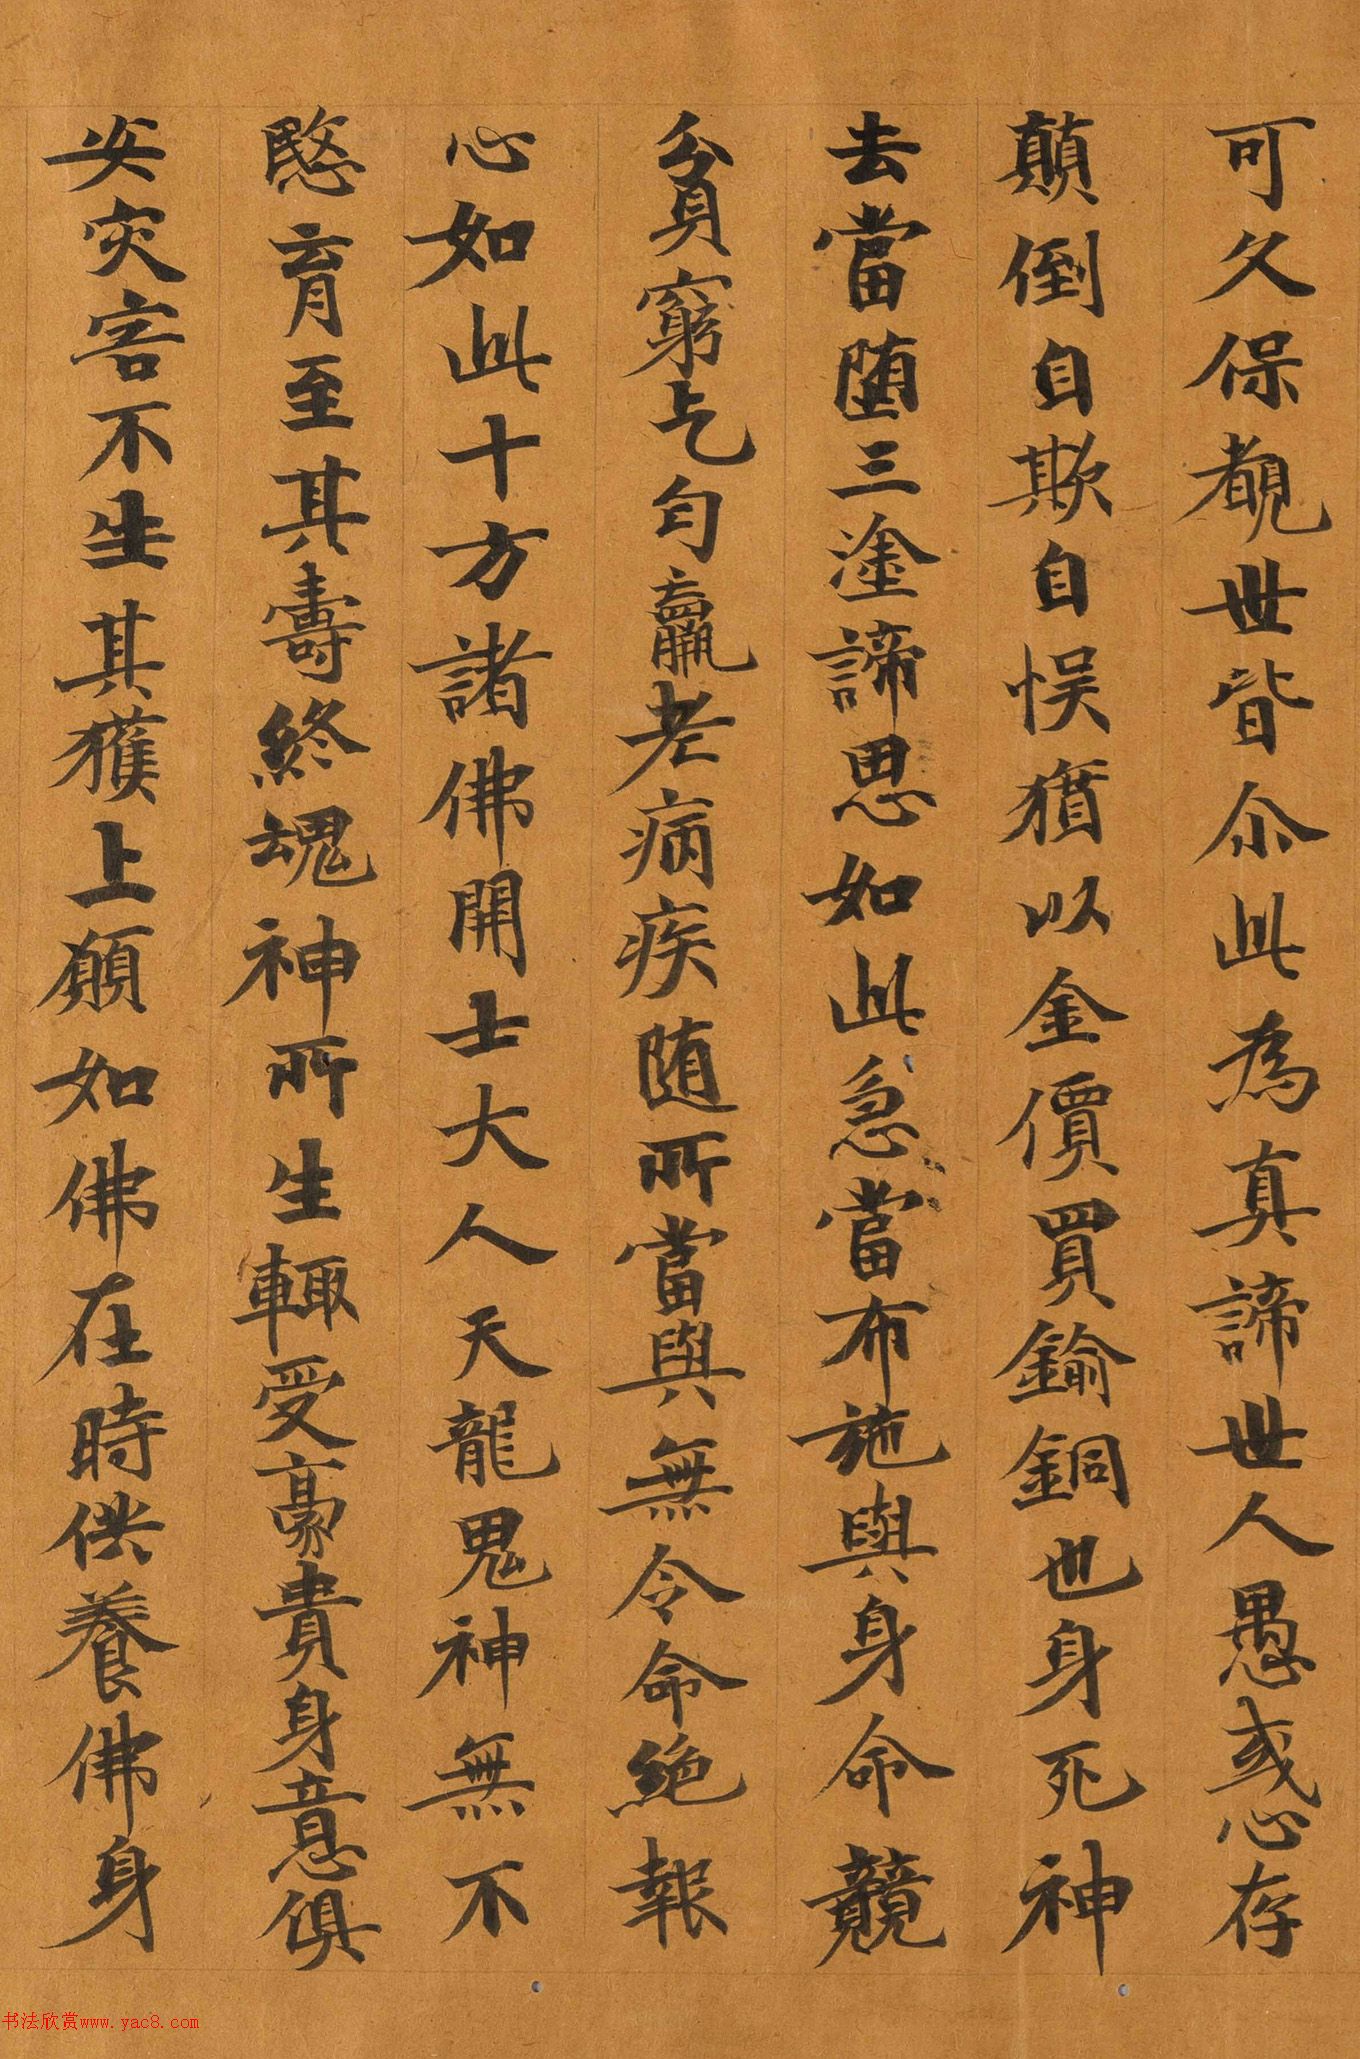 可久保覩世皆尒此為真諦世人愚或心存
顛倒自欺自悞猶以金價買鍮銅也身死神
去當堕三塗諦思如此急當布施與身命競
貧窮乞匄羸老病疾随所當與無令命絶報
心如此十方諸佛開士大人天龍鬼神無不
愍育至其壽終魂神所生輙受豪貴身意俱
安灾害不生其獲上願如佛在時供養佛身
书法欣赏www.yac8.com